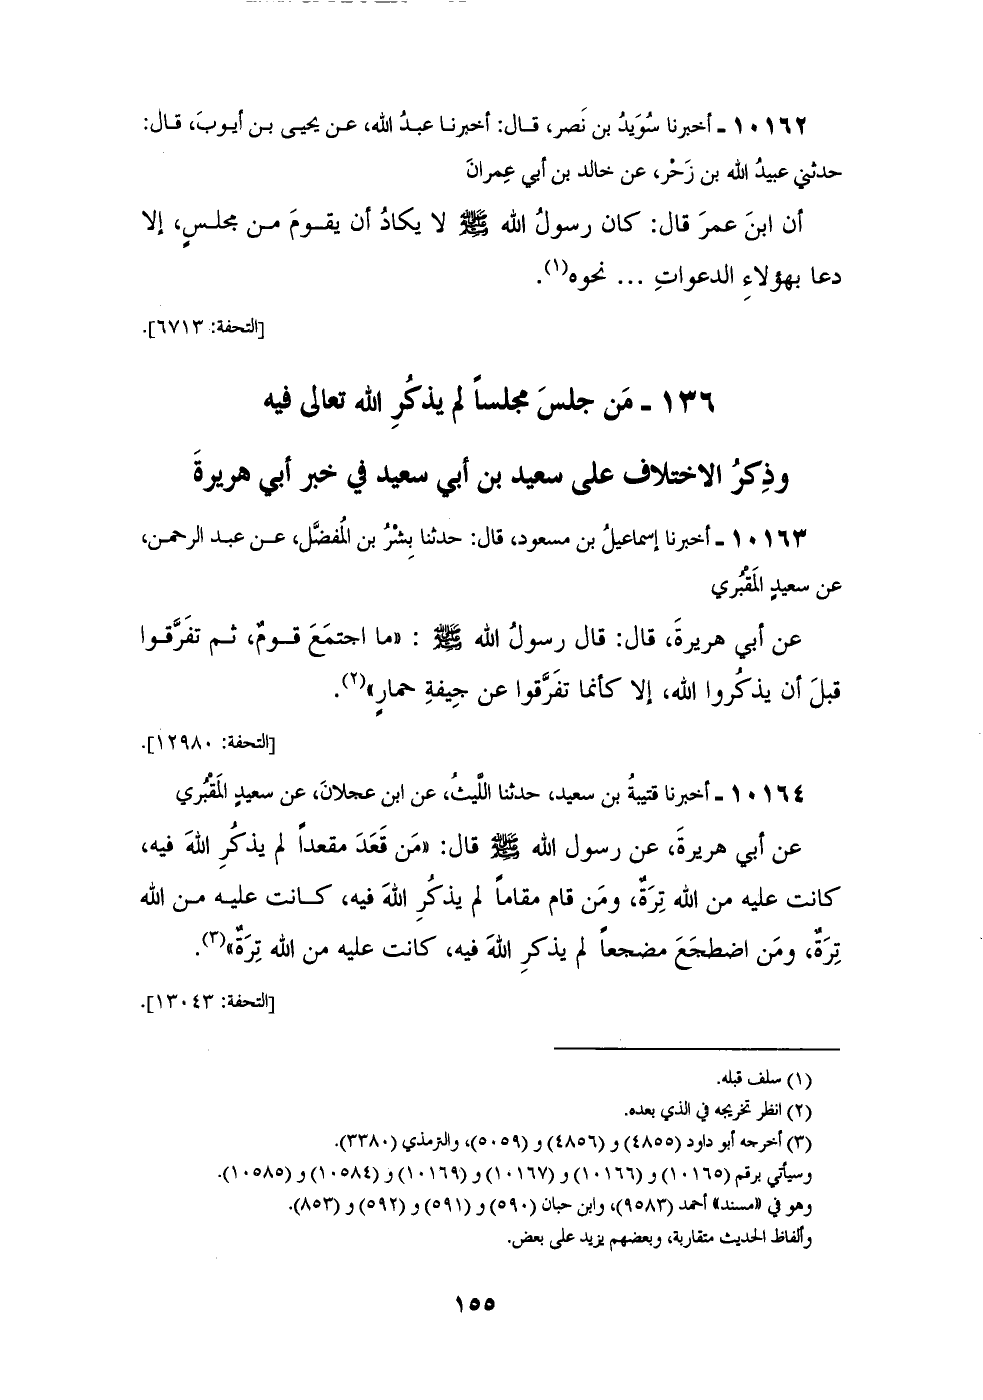 ١٠١٦٢ ـ أخبرنا سُوَيدُ بن نَصر، قـال: أخبرنـا عبـدُ الله، عـن يحيـى بـن أيـوبَ، قـال:
حدثني عبيدُ الله بن زَحْر، عن خالد بن أبي عِمرانَ
أن ابنَ عمرَ قال: كان رسولُ الله ﷺ لا يكادُ أن يقـومَ مـن مجلـسٍ، إلا
دعا بهؤلاءِ الدعواتِ ... نحوه(١).
[التحفة: ٦٧١٣].
١٣٦ ـ مَن جلسَ مجلساً لم يذكُرِ الله تعالى فيه
وذِكرُ الاختلاف على سعيد بن أبي سعيد في خبر أبي هريرةَ
١٠١٦٣ ـ أخبرنا إسماعيلُ بن مسعود، قال: حدثنا بِشْرُ بن المُفضَّل، عـن عبـد الرحمـن،
عن سعيدٍ المَقْبُري
عن أبي هريرةَ، قال: قال رسولُ الله ﷺ : «ما اجتمَعَ قـومٌ، ثـم تفرَّقـوا
قبلَ أن يذكُروا الله، إلا كأنما تفرَّقوا عن جِيفةِ حمارٍ»(٢).
[التحفة: ١٢٩٨٠].
١٠١٦٤ ـ أخبرنا قتيبةُ بن سعيد، حدثنا اللَّيثُ، عن ابن عجلانَ، عن سعيدٍ المَقْبُري
عن أبي هريرةَ، عن رسول الله ﷺ قال: «مَن قَعَدَ مقعداً لم يذكُرِ اللهَ فيه،
كانت عليه من الله تِرَةٌ، ومَن قام مقاماً لم يذكُرِ اللهَ فيه، كـانت عليـه مـن الله
تِرَةٌ، ومَن اضطجَعَ مضجعاً لم يذكرِ اللهَ فيه، كانت عليه من الله تِرَةٌ»(٣).
[التحفة: ١٣٠٤٣].
(١) سلف قبله.
(٢) انظر تخريجه في الذي بعده.
(٣) أخرجه أبو داود (٤٨٥٥) و (٤٨٥٦) و (٥٠٥٩)، والترمذي (٣٣٨٠).
وسيأتي برقم (١٠١٦٥) و (١٠١٦٦) و (١٠١٦٧) و (١٠١٦٩) و (١٠٥٨٤) و (١٠٥٨٥).
وهو في «مسند» أحمد (٩٥٨٣)، وابن حبان (٥٩٠) و (٥٩١) و (٥٩٢) و (٨٥٣).
وألفاظ الحديث متقاربة، وبعضهم يزيد على بعض.
١٥٥